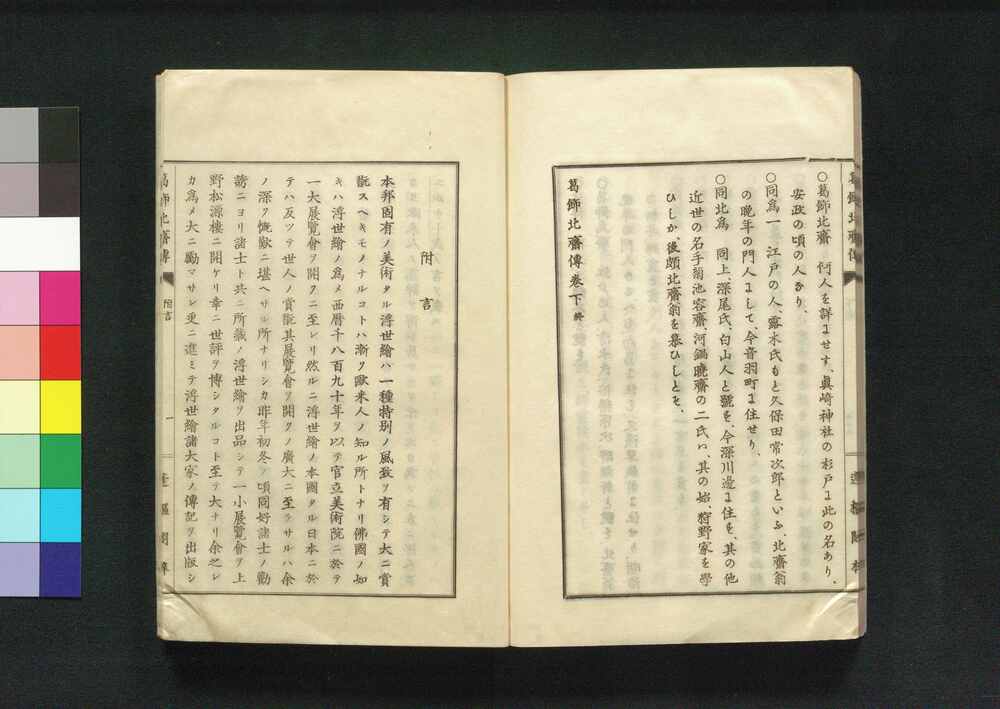 ○葛飾北齋　何人を詳よせす、眞崎神社の杉戸よ此の名あり、
安政の頃の人なり、
○同爲一　江戸の人、露木氏もと久保田常次郎といふ、北齋翁
の晩年の門人よして、今音羽町よ住せり、
○同北爲　同上、深尾氏、白山人と號を、今深川邊よ住を、其の他
近世の名手菊池容齋、河鍋曉齋の二氏ハ、其の始、狩野家を學
ひしか後頗北齋翁を慕ひしとそ、
葛飾北齋傳巻下終
附言
本邦固有ノ美術タル浮世繪ハ一種特別ノ風致ヲ有シテ大ニ賞
翫スヘキモノナルコトハ漸ク歐米人ノ知ル所トナリ佛國ノ如
キハ浮世繪ノ爲メ西暦千八百九十年ヲ以テ官立美術院ニ於テ
一大展覽會ヲ開クニ至レリ然ルニ浮世繪ノ本國タル日本ニ於
テハ反ツテ世人ノ賞翫其展覽會ヲ開クノ廣大ニ至ラサルハ余
ノ深ク慨歎ニ堪ヘサル所ナリシカ昨年初冬ノ頃同好諸士ノ勸
誘ニヨリ諸士ト共ニ所藏ノ浮世繪ヲ出品シテ一小展覽會ヲ上
野松源樓ニ開ケリ幸ニ世評ヲ博シタルコト至テ大ナリ余之レ
カ爲メ大ニ勵マサレ更ニ進ミテ浮世繪諸大家ノ傳記ヲ出版シ
葛飾北齋傳
附言
一